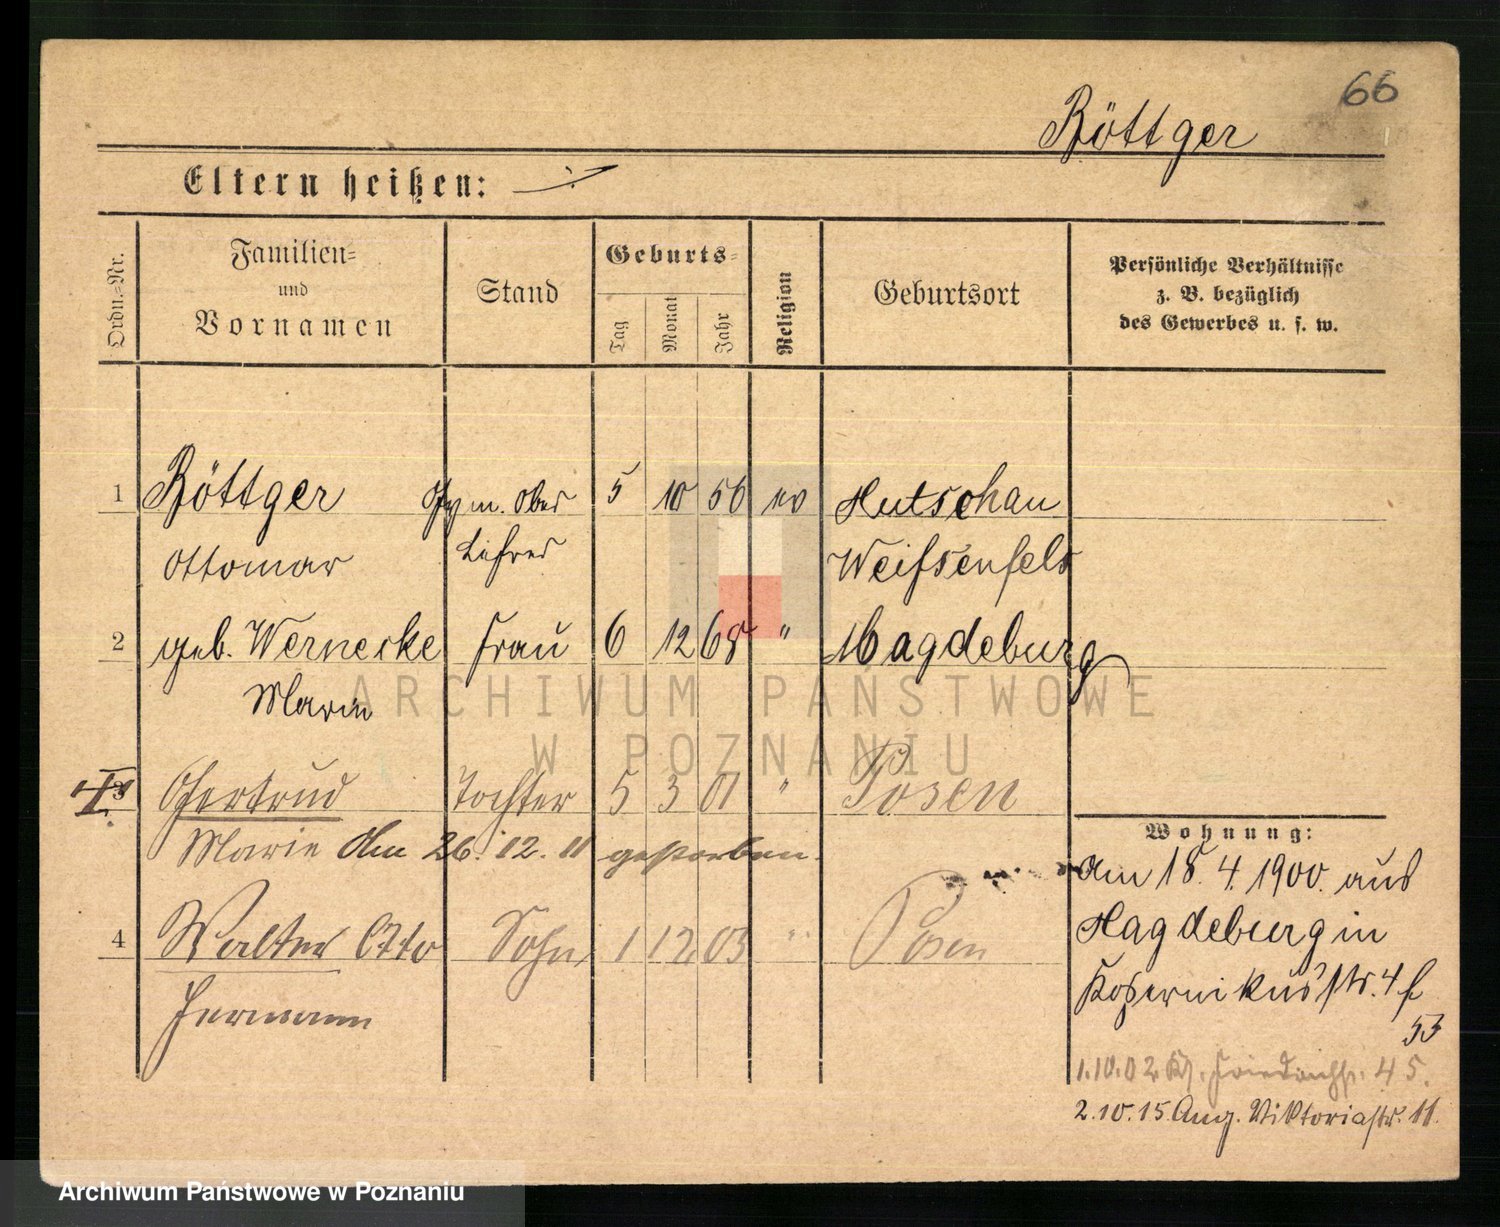 66
Böttger
Eltern heißen:
Ordn.-Nr.
Familien-
und
Vornamen
Stand
Geburts-
Tag
Monat
Jahr
Religion
Geburtsort
Persönliche Verhältnisse
z. B. bezüglich
des Gewerbes u. s. w.
1 Böttger Gym. Ober 5 10 56 ev Hutschau
Ottomar Lehrer Weißenfels
2 geb. Wernecke Frau 6 12 68 " Magdeburg
Marie
ARCHIWUM PAŃSTWOWE
W POZNANIU
3 Gertrud Tochter 5 3 01 " Posen
Marie Am 26. 12. 11 gestorben.
Wohnung:
Am 18. 4. 1900. aus
Magdeburg in
4 Walter Otto Sohn 1 12 03 " Posen
Hermann
Kopernikusstr. 4
53
1.10.02 45.
2.10.15 Aug. Viktoriastr. 11.
Archiwum Państwowe w Poznaniu